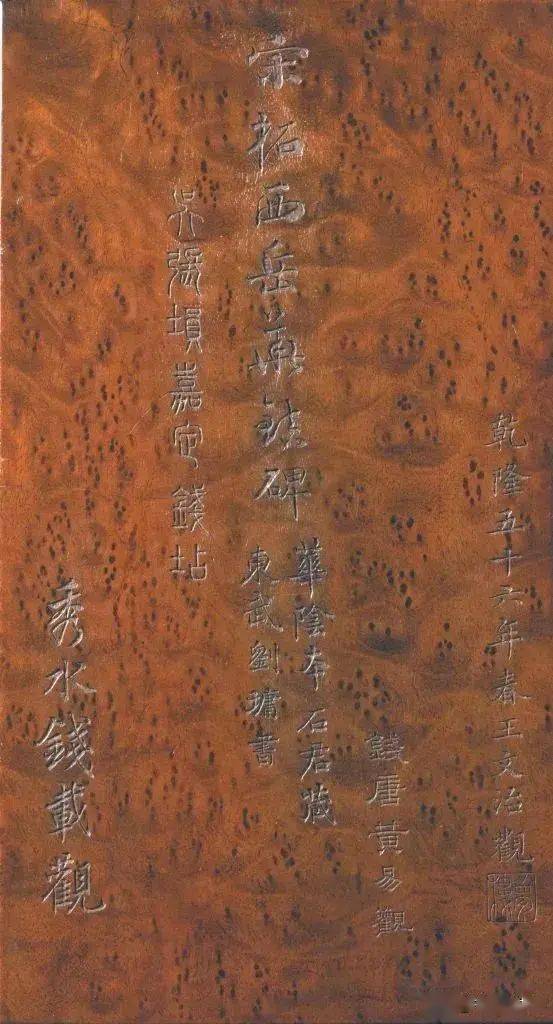 乾隆五十六年春王文治觀
錢唐黃易觀
華陰本石君藏
宋拓西岳華碑
東武劉墉書
吳張塤嘉定錢坫
秀水錢載觀